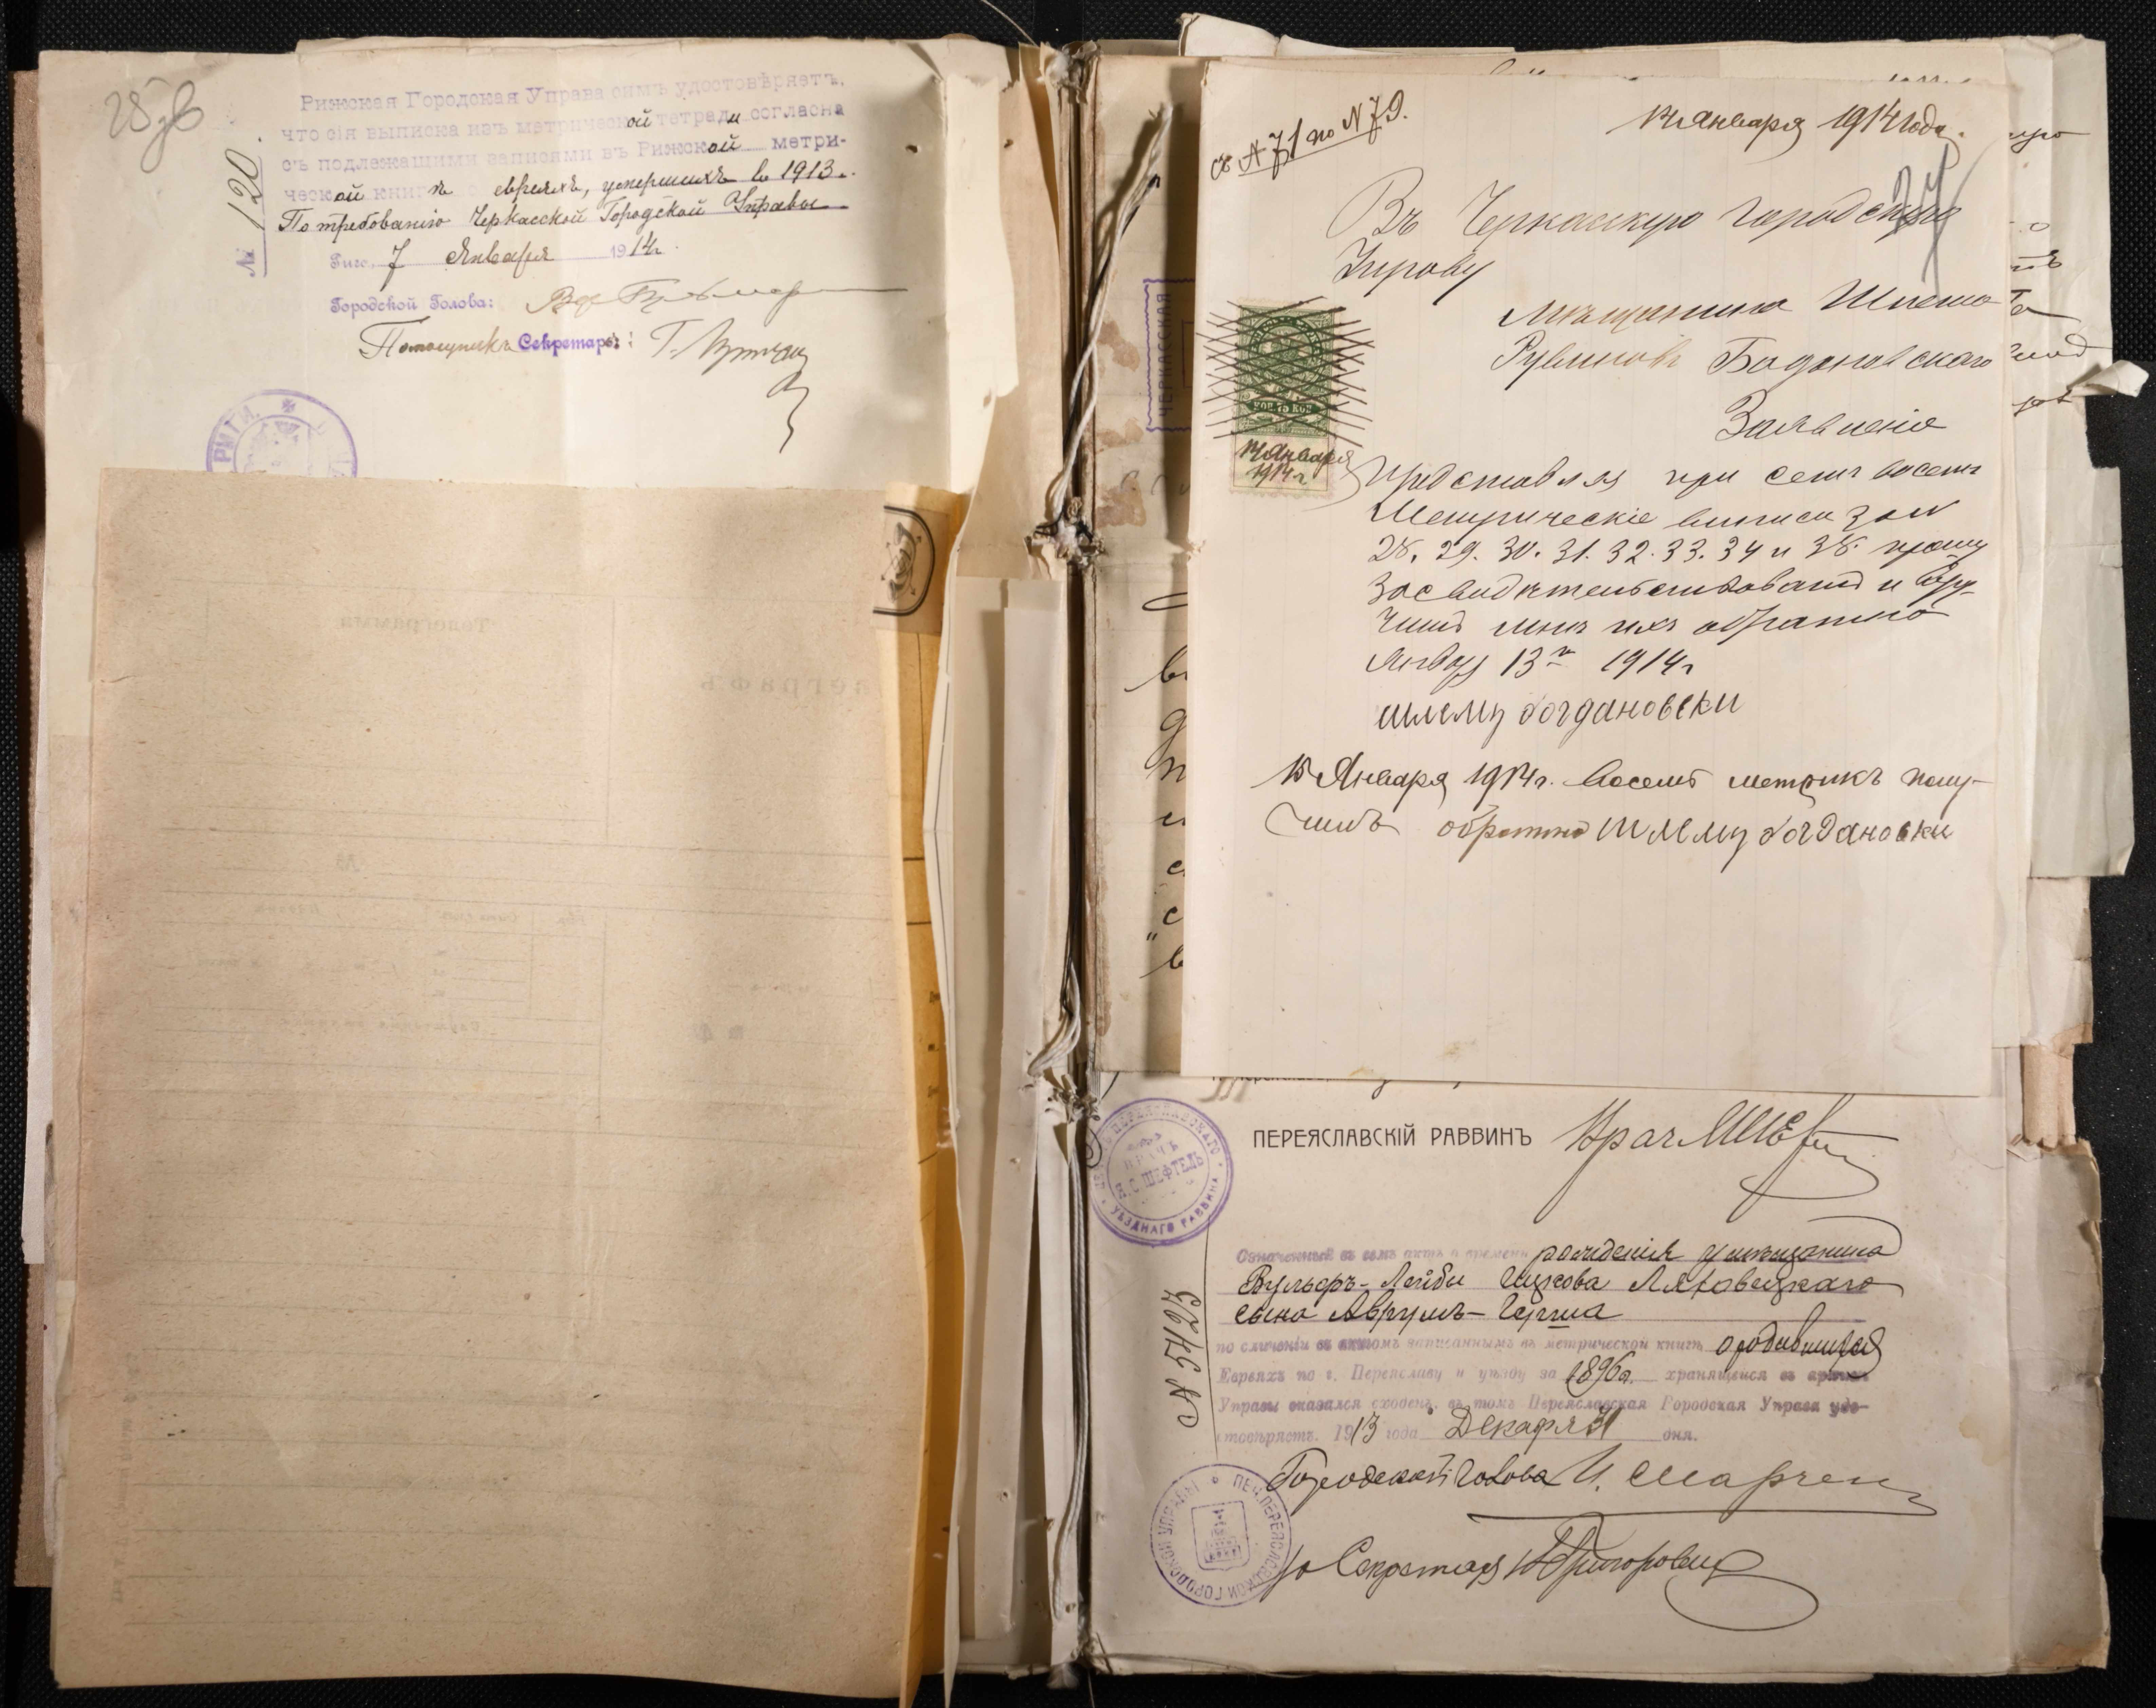 28 об
Рижская Городская Управа симъ удостовѣряетъ,
что сія выписка изъ метрической тетради согласна
съ подлежащими записями въ Рижской метри-
ческой книгѣ о евреяхъ, умершихъ въ 1913 г.
По требованію Черкасской Городской Управы
Рига, 7 Января 1914 г.
Городской Голова:
Помощникъ Секретаря:
№ 120
РИГИ
Телеграмма
ЧЕРКАССКАЯ
съ № 71 по № 79.
14 Января 1914 года.
Въ Черкасскую Городскую
Управу
Мѣщанина Шлемы
Рувинова Богдановскаго
Заявленіе
14 Января
1914 г.
КОП. 75 КОП
Представляя при семъ восемь
Метрическіе выписи за №
28. 29. 30. 31. 32. 33. 34 и 38. прошу
засвидѣтельствовать и вру-
чить мнѣ ихъ обратно
Январ 13 1914 г
шлему богдановски
15 Января 1914 г. восемь метрикъ полу-
чилъ обратно шлему богдановски
ПЕРЕЯСЛАВСКІЙ РАВВИНЪ Врач
ВРАЧЪ
ШЕФТЕЛЬ
УѢЗДНАГО РАВВИНА
Означенный въ семъ актѣ о времени рожденія у мѣщанина
Вульфъ-Лейбы Ицкова Ляховецкаго
сына Аврумъ-Герша
по сличеніи съ актомъ записаннымъ въ метрической книгѣ о родившихся
Евреяхъ по г. Переяславу и уѣзду за 1896 г. хранящейся въ архивѣ
Управы оказался сходенъ, въ томъ Переяславская Городская Управа удо-
стовѣряетъ. 1913 года Декабря 31 дня.
№ 5423
Городской Голова И. Марчен
ПЕЧ. ПЕРЕЯСЛАВСКОЙ ГОРОДСКОЙ УПРАВЫ
Секретаря Григоровичъ